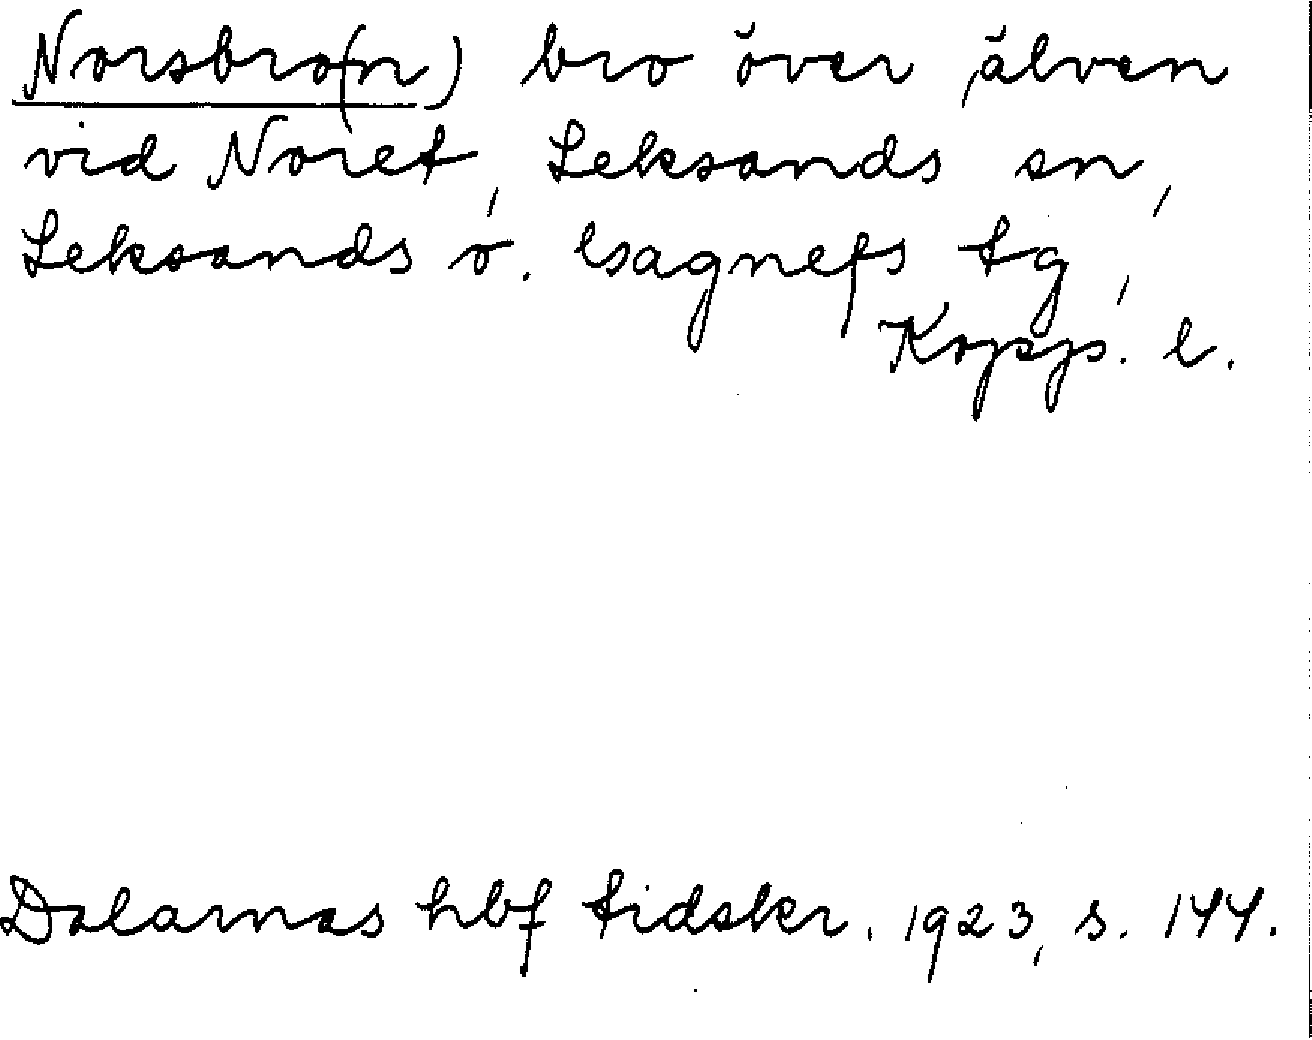 Norsbro(n) bro över älven
vid Noret, Leksands sn,
Leksands o. Gagnefs tg,
Kopp. l.
Dalarnas hbf tidskr. 1923, s. 144.